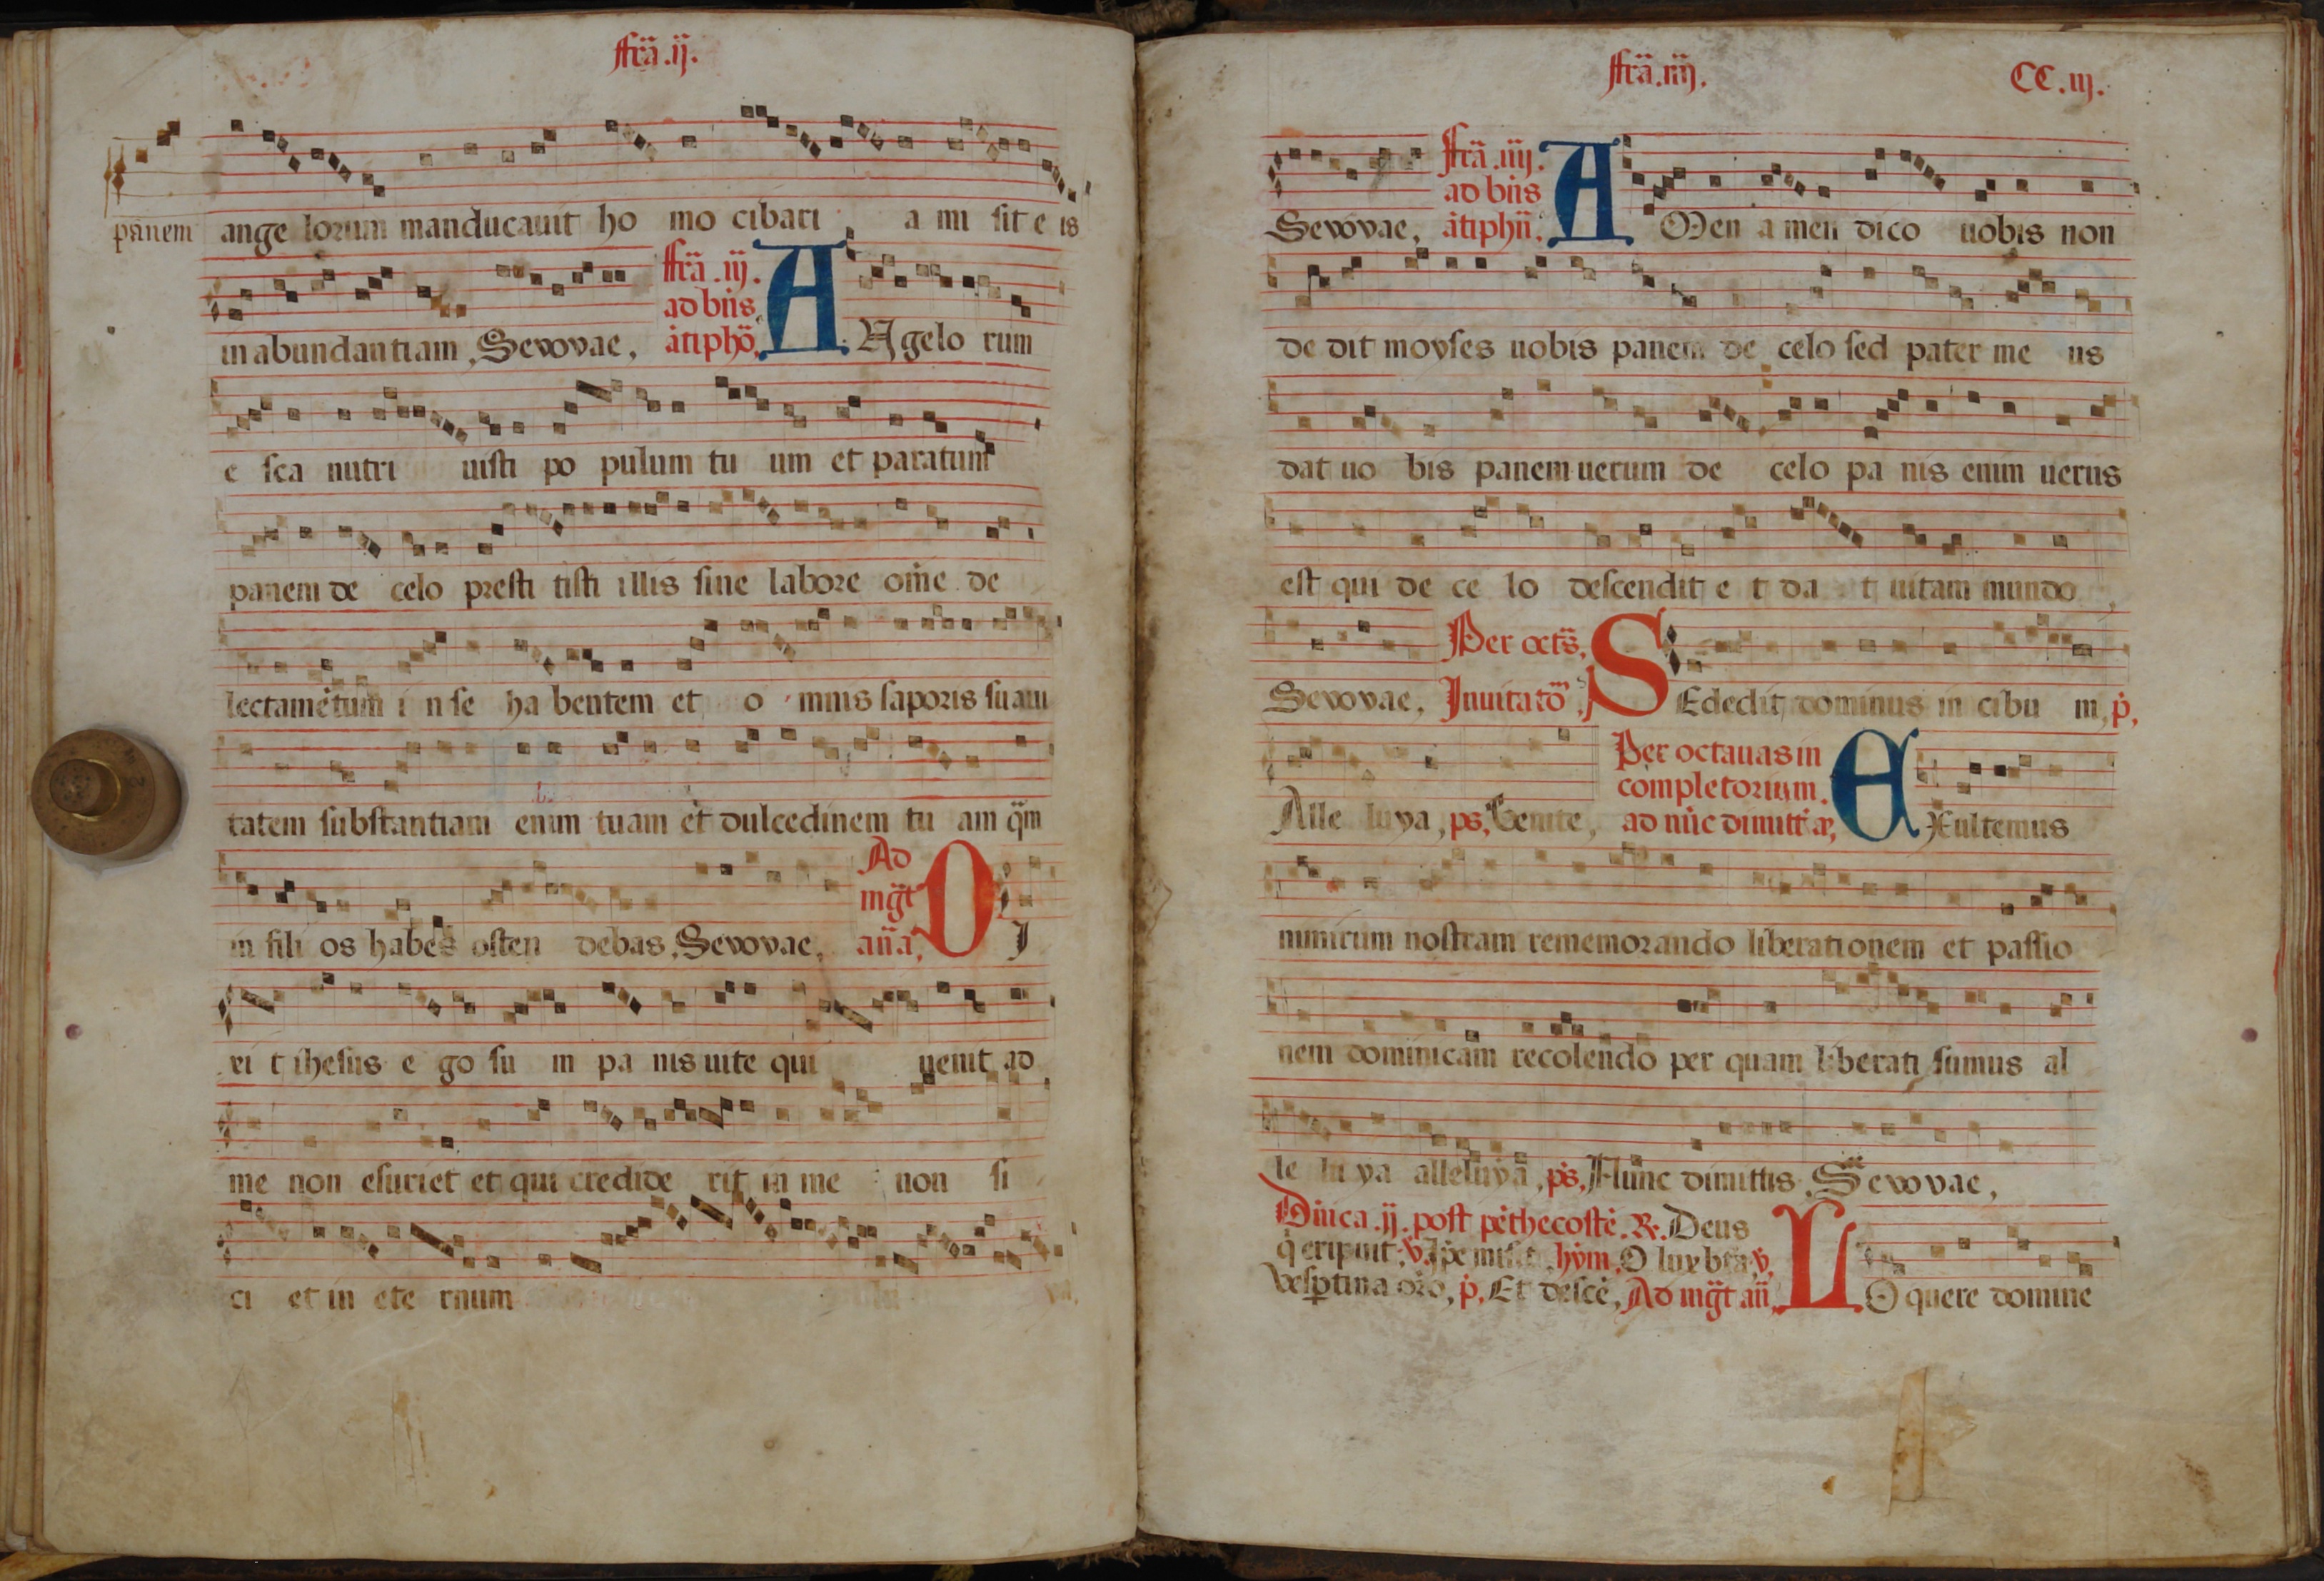 ffrã .ij.
panem ange lorum manducauit ho mo cibari a mi sit e is
in abundantiam, Sevovae, ffrã .iij. A Ngelo rum
ad bñs
ãtiphõ
e sca nutri uisti po pulum tu um et paratum
panem de celo presti tisti illis sine labore om̃e de
lectamẽtum i n se ha bentem et o mnis saporis suaui
tatem substantiam enim tuam et dulcedinem tu am q̃m
in fili os habes osten debas, Sevovae, Ad mg̃t añã, D I
xi t ihesus e go su m pa nis uite qui uenit ad
me non esuriet et qui credide rit in me non si
ci et in ete rnum
ffrã .iiij.
CC.iij.
Sevovae, ffrã .iiij. ad bñs ãtiphñ. A Men a men dico uobis non
de dit moyses uobis panem de celo sed pater me us
dat uo bis panem uerum de celo pa nis enim uerus
est qui de ce lo descendit e t da t uitam mundo
Sevovae, Per octs̃, Inuitatõ, S Ededit dominus in cibu m, p̃,
Alle luya, ps, Venite, Per octauas in completorium. ad nũc dimitt̃ E Xultemus
nimirum nostram rememorando liberationem et passio
nem dominicam recolendo per quam liberati sumus al
le lu ya alleluya, ps, Nunc dimittis, Sevovae,
Dñica .ij. post pẽthecostẽ. R. Deus
q̃ eripuit, v̄, Ip̃e misit, hym, O lux btã, v̄,
Vesp̃tina orõ, p̃, Et descẽ, Ad mg̃t añ, L O quere domine